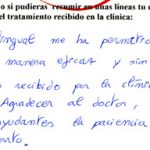 o si pudieras resumir en unas líneas tu e
el tratamiento recibido en la clínica:
lingual me ha permitido
manera eficaz y sin
o recibido por la clínica
Agradecer al doctor,
ayudantes la paciencia
ento.